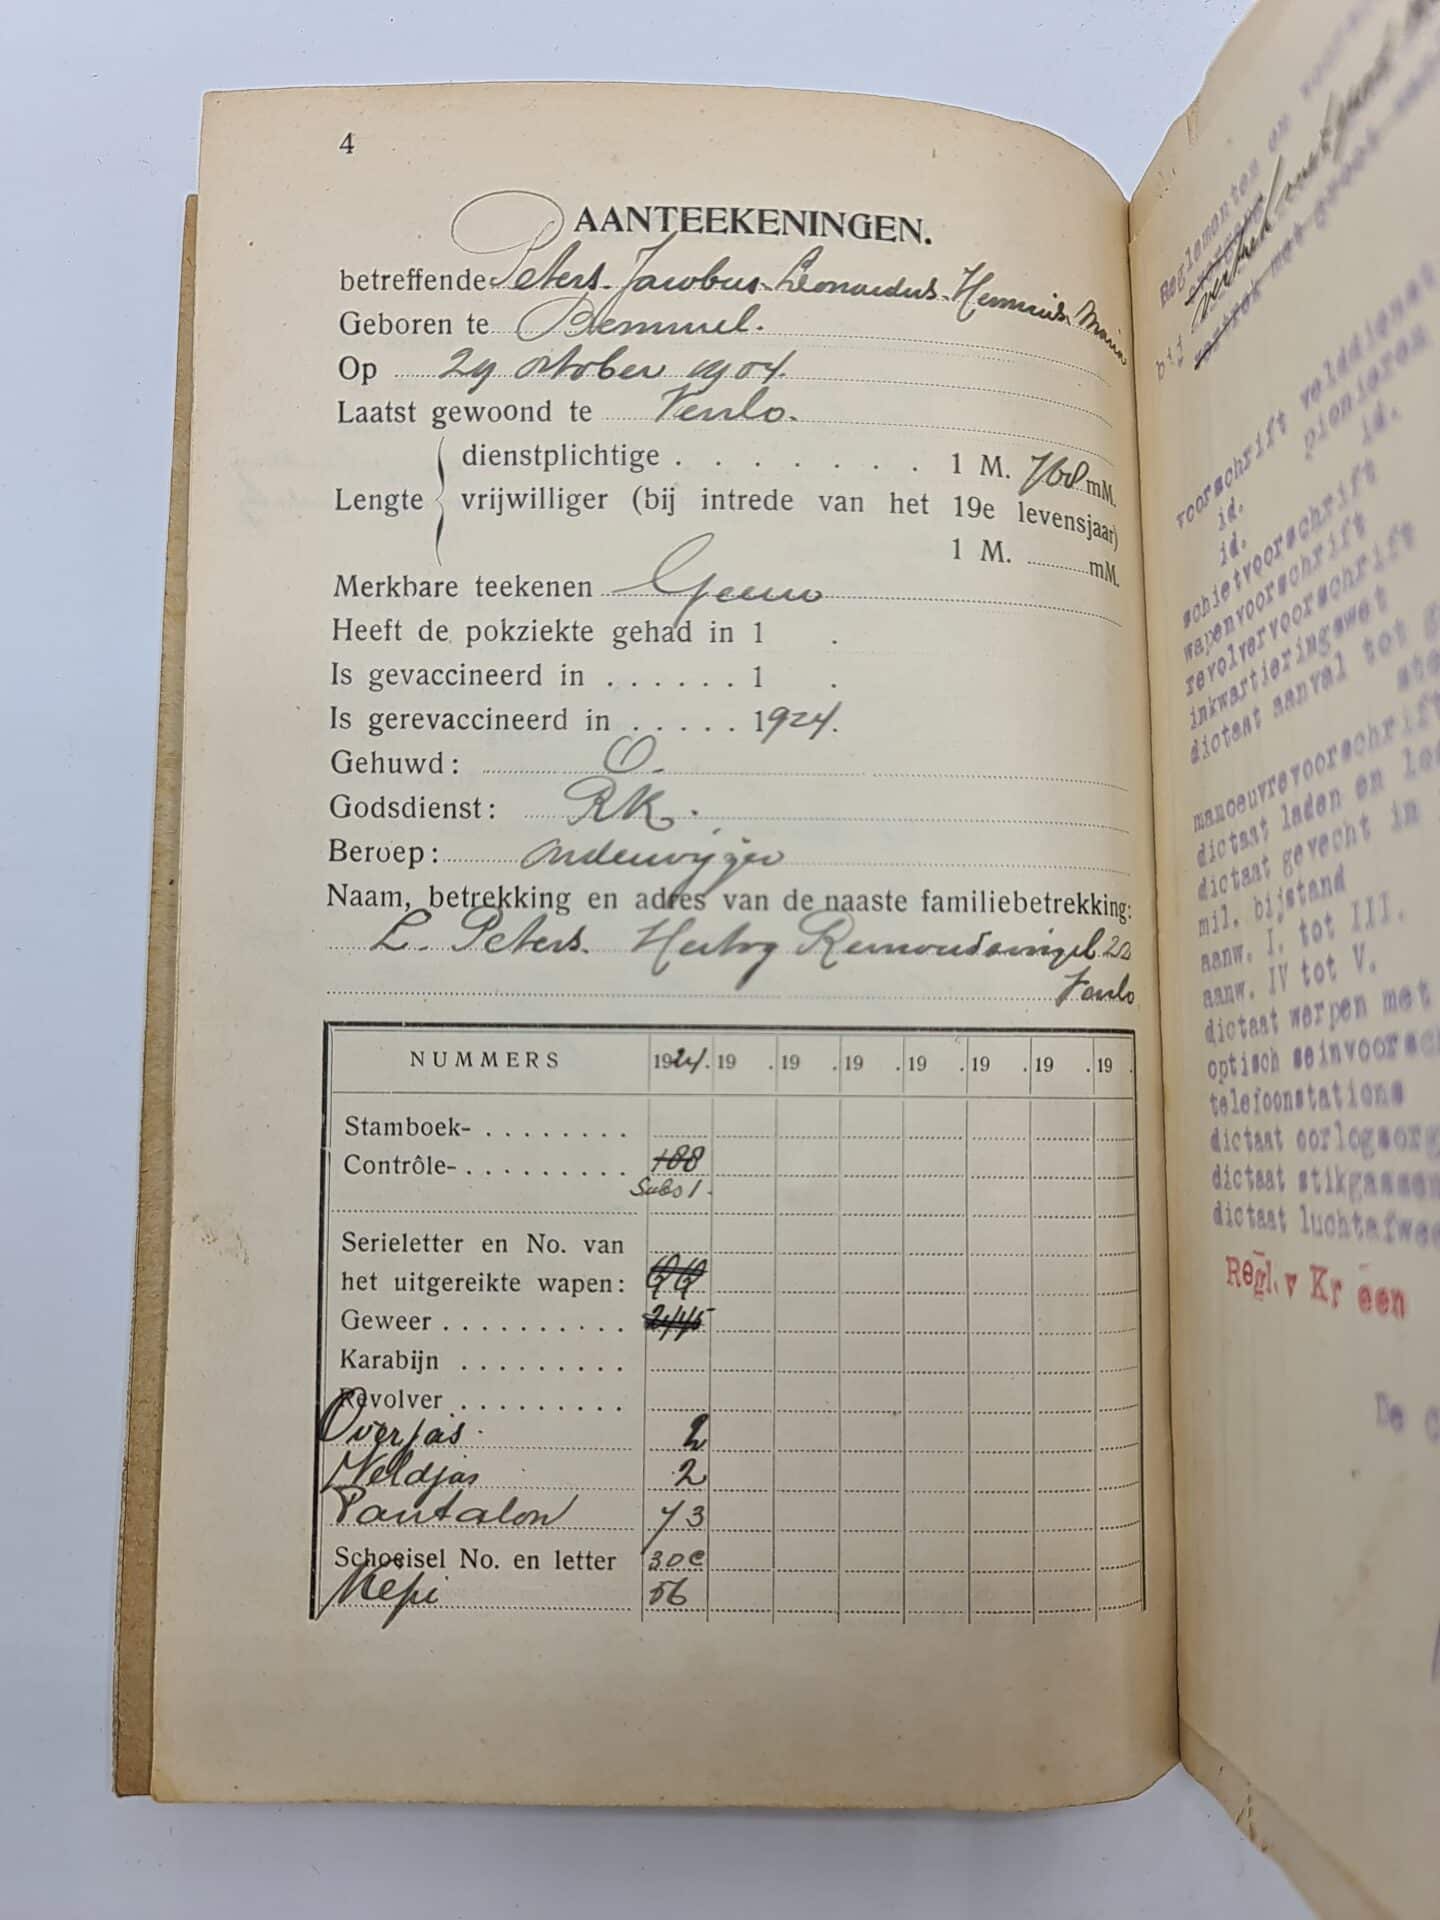 4
AANTEEKENINGEN.
betreffende Peters. Jacobus. Leonardus. Henricus Maria
Geboren te Bemmel.
Op 29 october 1904.
Laatst gewoond te Venlo.
dienstplichtige . . . . . . . 1 M. 768 mM.
Lengte vrijwilliger (bij intrede van het 19e levensjaar)
1 M. mM.
Merkbare teekenen Geene
Heeft de pokziekte gehad in 1 .
Is gevaccineerd in . . . . . . 1 .
Is gerevaccineerd in . . . . . 1924.
Gehuwd: O.
Godsdienst: RK.
Beroep: onderwijzer
Naam, betrekking en adres van de naaste familiebetrekking:
L. Peters. Hertog Reinoudsingel 22
Venlo
NUMMERS 1924. 19 . 19 . 19 . 19 . 19 . 19 . 19 .
Stamboek- . . . . . . . .
Contrôle- . . . . . . . . . 188
Subs 1.
Serieletter en No. van
het uitgereikte wapen:
Geweer . . . . . . . . . . 2445
Karabijn . . . . . . . . .
Revolver . . . . . . . . .
Overjas. 2
Veldjas 2
Pantalon 73
Schoeisel No. en letter 30e
Kepi 56
Reglementen en
bij
voorschrift velddienst
id. pionieren
id. id.
schietvoorschrift
wapenvoorschrift
revolvervoorschrift
inkwartieringswet
dictaat aanval tot
manoeuvrevoorschrift
dictaat laden en
dictaat gevecht in
mil. bijstand
aanw. I. tot III.
aanw. IV tot V.
dictaat werpen met
optisch seinvoorsch
telefoonstations
dictaat oorlogsorg
dictaat stikgassen
dictaat luchtafwee
Regl. v Kr een
De